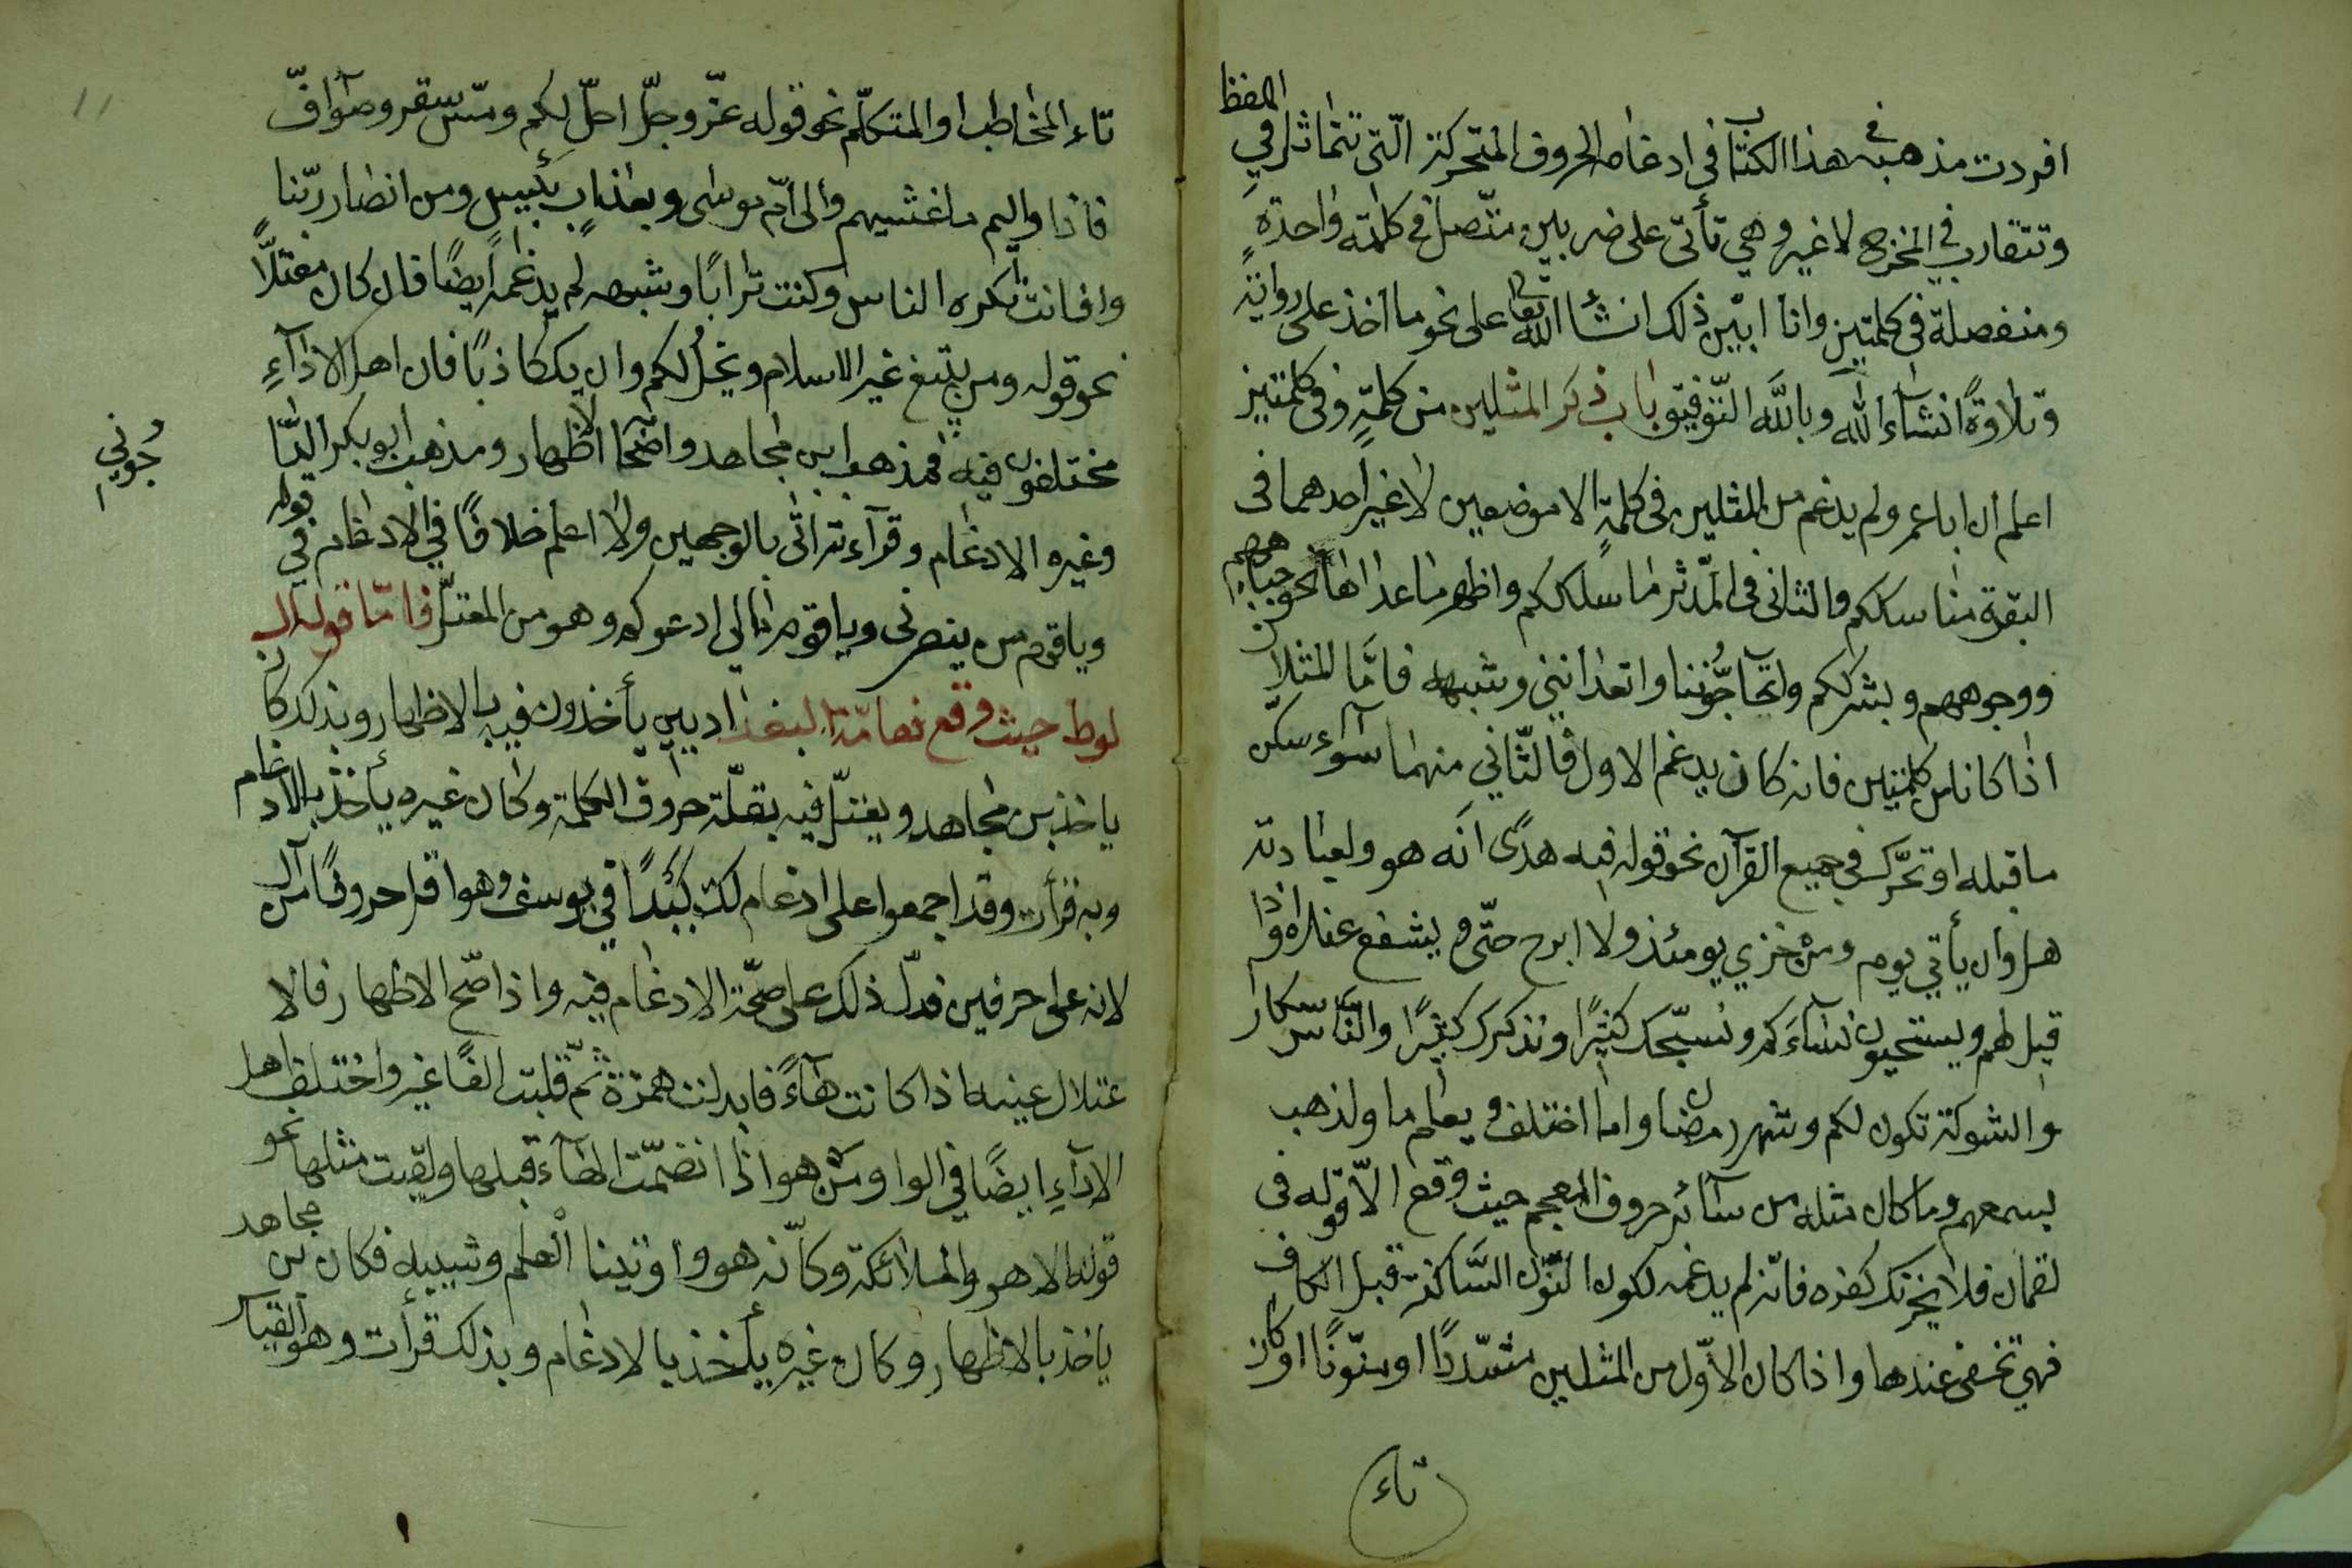 افردت مذهبه في هذا الكتاب في ادغام الحروف المتحركة الّتي تتماثل في اللفظ
وتتقارب في المخرج لا غير وهي تأتي على ضربين متّصلة في كلمة واحدةٍ
ومنفصلة في كلمتين وانا ابيّن ذلك انشأ الله تعالى على نحو ما اخذ على رواية
وتلاوةً انشآء الله وبالله التّوفيق باب ذكر المثلين من كلمةٍ وفي كلمتين
اعلم ان اباعمرو لم يدغم من المثلين في كلمةٍ الا موضعين لا غير احدهما في
البقرة مناسككم والثاني في المدّثر ما سلككم واظهر ما عداهما نحو جباههم
ووجوههم وبشرككم واتحآجّوننا واتعدانني وشبهه فامّا المثلان
اذا كانا من كلمتين فانه كان يدغم الاول في الثّاني منهما سوآء سكن
ما قبله او تحرّك في جميع القرآن نحو قوله فيه هدًى انّه هو ولعبادته
هل وان يأتي يوم ومن خزي يومئذ ولا ابرح حتّى ويشفع عنده واذا
قيل لهم ويستحيون نسآءكم ونسبّحك كثيرًا ونذكرك كثيرًا والنّاس سكارى
والشوكة تكون لكم وشهر رمضان واما اختلف ويعلم ما ولذهب
بسمعهم وما كان مثله من سآئر حروف المعجم حيث وقع الّا قوله في
لقمان فلا يحزنك كفره فانّه لم يدغمه لكون النّون السّاكنة قبل الكاف
فهي تخفى عندها واذا كان الاوّل من المثلين مشدّدًا او منوّنًا او كان
تاء
تاء المخاطب او المتكلّم نحو قوله عزّ وجلّ احلّ لكم ومسّ سقر وصوآفّ
فاذا واليم ما غشيهم والى امّ موسى وبعذابٍ بئيس ومن انصار ربّنا
وافانت تكره الناس وكنت ترابًا وشبهه لم يدغمه ايضًا فان كان معتلّاً
نحو قوله ومن يبتغ غير الاسلام ويخل لكم وان يك كاذبًا فان اهل الادآءِ
مختلفون فيه فمذهب ابن مجاهد واصحابه الاظهار ومذهب ابو بكر الدّا
جوني
وغيره الادغام وقرآءتي انا بالوجهين ولا اعلم خلافًا في الادغام في قوله
وياقوم من ينصرني وياقوم مالي ادعوكم وهو من المعتلّ فامّا قوله ال
لوط حيث وقع فعامّة البغداديين يأخذون فيه بالاظهار وبذلك كان
ياخذ بن مجاهد ويعتلّ فيه بقلّة حروف الكلمة وكان غيره يأخذ بالادغام
وبه قرأت وقد اجمعوا على ادغام لك كيدًا في يوسف وهو اقل حروفًا من ال
لانه على حرفين فدلّ ذلك على صحّة الادغام فيه واذا صحّ الاظهار فالا
عتلال عينه اذا كانت هآءً فابدلت همزة ثمّ قلبت الفًا غير واختلف اهل
الادآءِ ايضًا في الواو من هو اذا انضمّت الهآء قبلها ولقيت مثلها نحو
قوله الا هو والملائكة وكانّه هو واوتينا العلم وشبيهه فكان بن مجاهد
ياخذ بالاظهار وكان غيره يأخذ بالادغام وبذلك قرأت وهو القياس